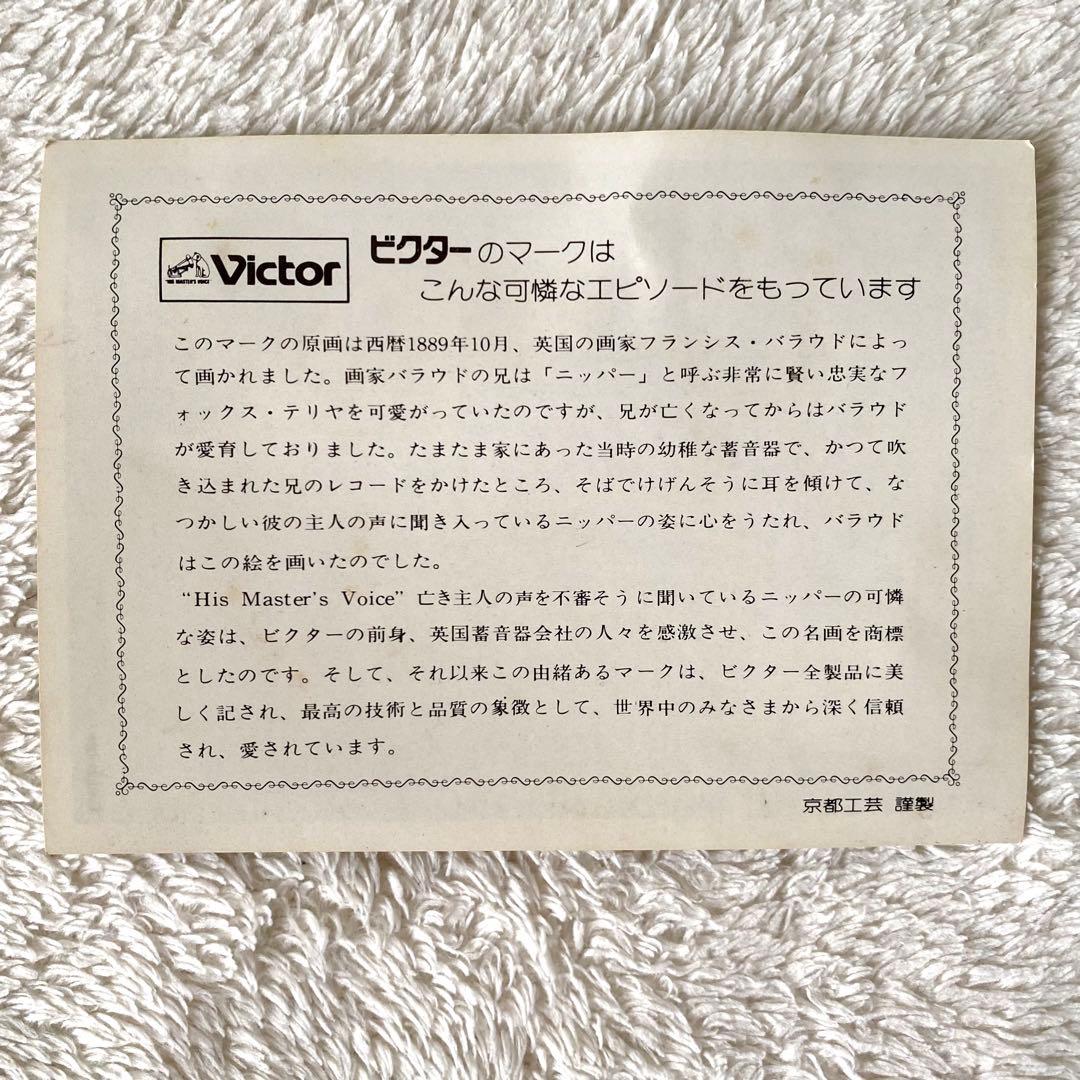 HIS MASTER'S VOICE
Victor
ビクターのマークは
こんな可憐なエピソードをもっています
このマークの原画は西暦1889年10月、英国の画家フランシス・バラウドによっ
て画かれました。画家バラウドの兄は「ニッパー」と呼ぶ非常に賢い忠実なフ
ォックス・テリヤを可愛がっていたのですが、兄が亡くなってからはバラウド
が愛育しておりました。たまたま家にあった当時の幼稚な蓄音器で、かつて吹
き込まれた兄のレコードをかけたところ、そばでけげんそうに耳を傾けて、な
つかしい彼の主人の声に聞き入っているニッパーの姿に心をうたれ、バラウド
はこの絵を画いたのでした。
“His Master's Voice” 亡き主人の声を不審そうに聞いているニッパーの可憐
な姿は、ビクターの前身、英国蓄音器会社の人々を感激させ、この名画を商標
としたのです。そして、それ以来この由緒あるマークは、ビクター全製品に美
しく記され、最高の技術と品質の象徴として、世界中のみなさまから深く信頼
され、愛されています。
京都工芸 謹製